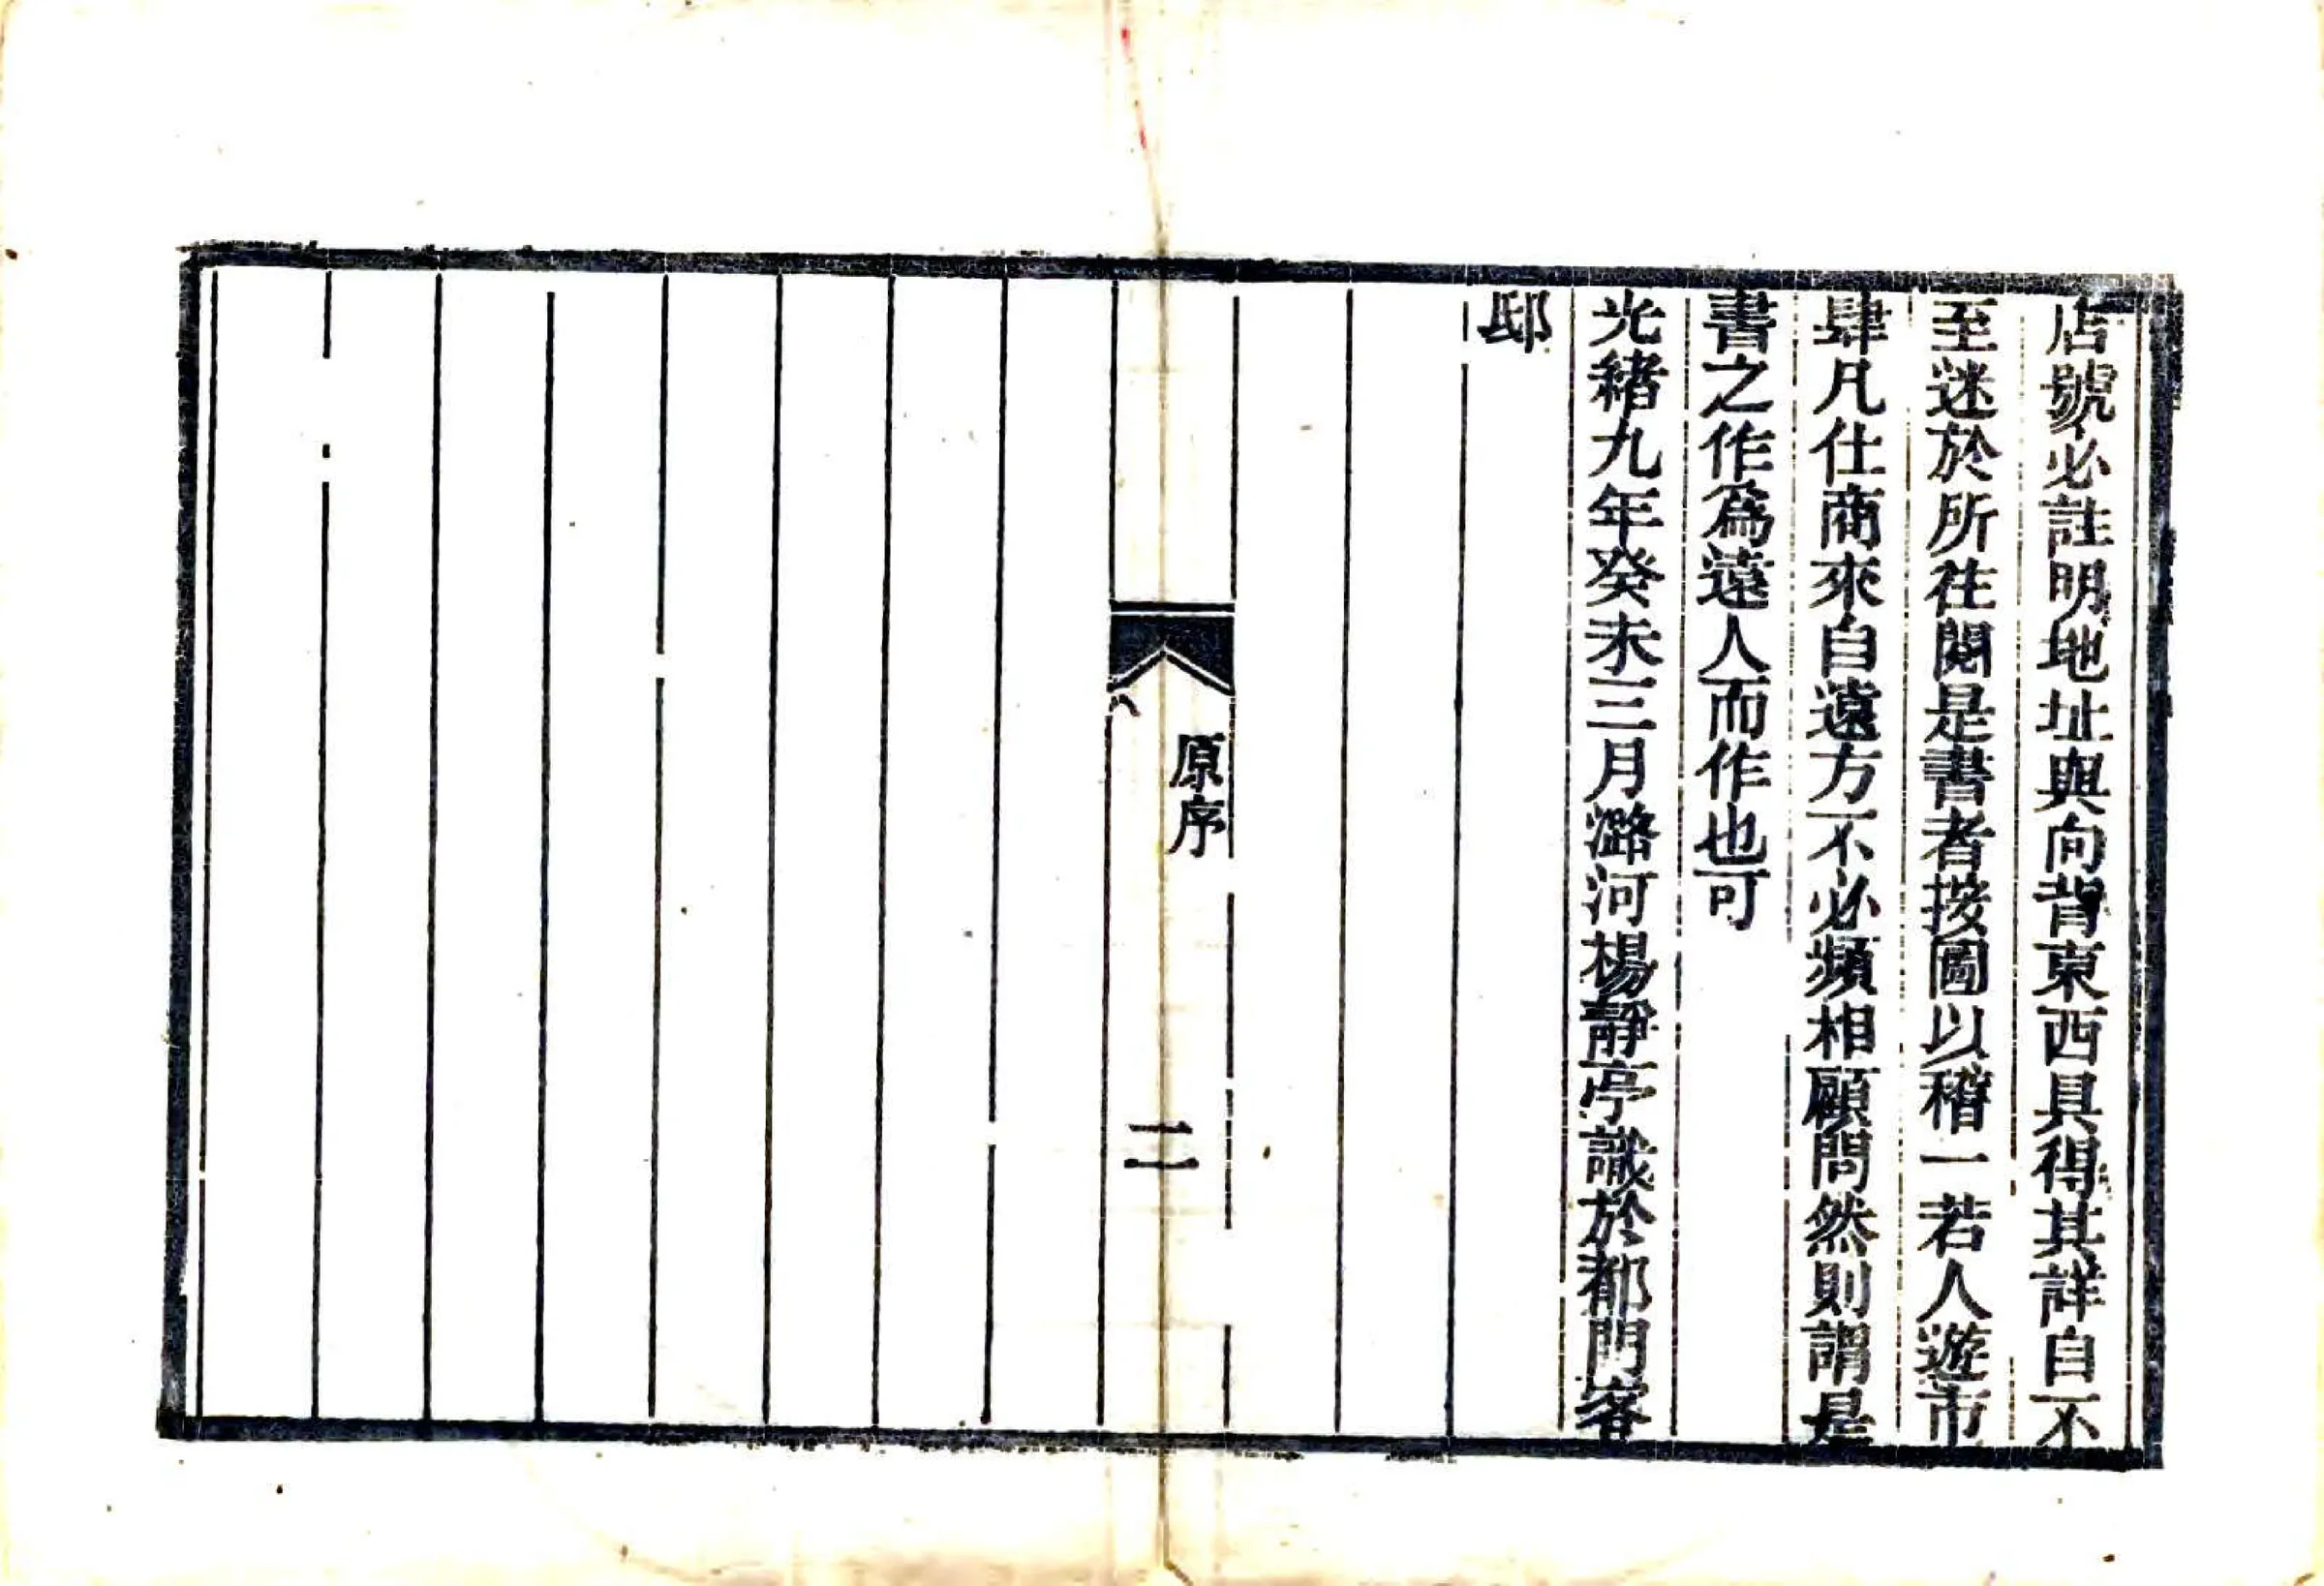 店號必註明地址與向背東西具得其詳自不
至迷於所往閱是書者按圖以稽一若人遊市
肆凡仕商來自遠方不必頻相顧問然則謂是
書之作爲遠人而作也可
光緖九年癸未三月潞河楊靜亭識於都門客
邸
原序
二